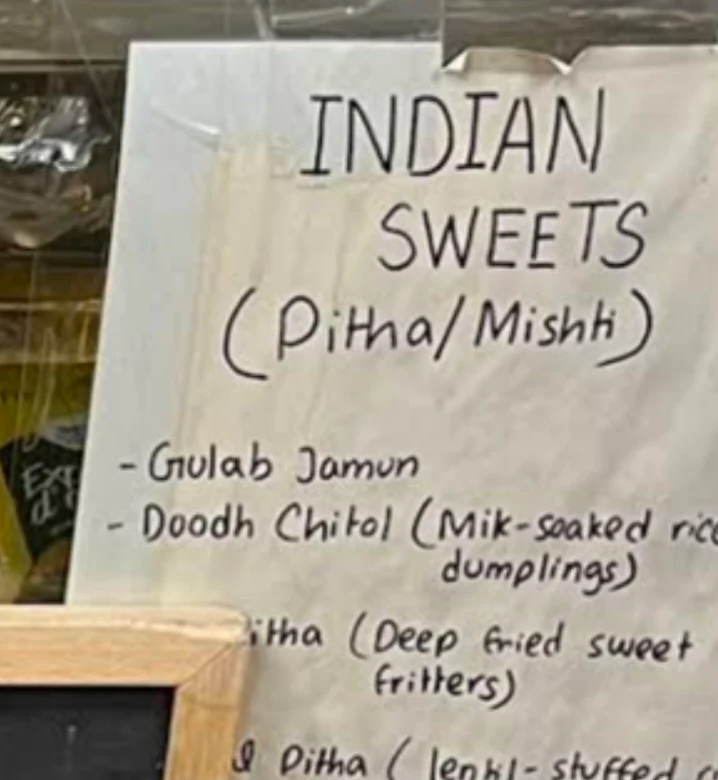 INDIAN
SWEETS
(Pitha/Mishti)
- Gulab Jamun
- Doodh Chitol (Mik-soaked rice
dumplings)
itha (Deep fried sweet
fritters)
Pitha (lentil-stuffed